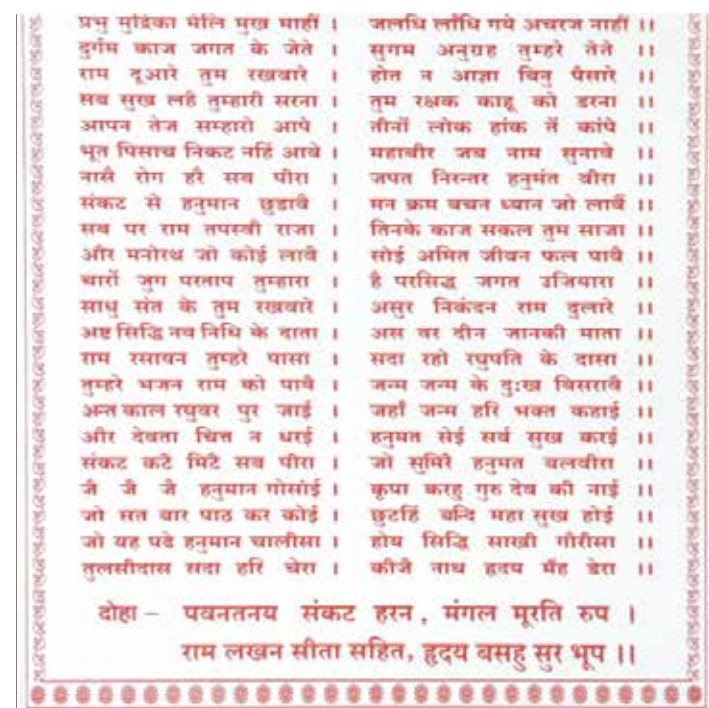 प्रभु मुद्रिका मेलि मुख माहीं । जलधि लाँघि गये अचरज नाहीं ।।
दुर्गम काज जगत के जेते । सुगम अनुग्रह तुम्हरे तेते ।।
राम दूआरे तुम रखवारे । होत न आज्ञा बिनु पैसारे ।।
सब सुख लहै तुम्हारी सरना । तुम रक्षक काहू को डरना ।।
आपन तेज सम्हारो आपे । तीनों लोक हांक तें कांपे ।।
भूत पिसाच निकट नहिं आवे । महाबीर जब नाम सुनावे ।।
नासै रोग हरै सब पीरा । जपत निरन्तर हनुमंत बीरा ।।
संकट से हनुमान छुडावै । मन क्रम बचन ध्यान जो लावैं ।।
सब पर राम तपस्वी राजा । तिनके काज सकल तुम साजा ।।
और मनोरथ जो कोई लावै । सोई अमित जीवन फल पावै ।।
चारों जुग परताप तुम्हारा । है परसिद्ध जगत उजियारा ।।
साधु संत के तुम रखवारे । असुर निकंदन राम दुलारे ।।
अष्ट सिद्धि नव निधि के दाता । अस वर दीन जानकी माता ।।
राम रसायन तुम्हरे पासा । सदा रहो रघुपति के दासा ।।
तुम्हरे भजन राम को पावै । जन्म जन्म के दुःख बिसरावै ।।
अन्त काल रघुवर पुर जाई । जहाँ जन्म हरि भक्त कहाई ।।
और देवता चित्त न धरई । हनुमत सेई सर्व सुख करई ।।
संकट कटै मिटै सब पीरा । जो सुमिरै हनुमत बलबीरा ।।
जै जै जै हनुमान गोसांई । कृपा करहु गुरु देव की नाई ।।
जो सत बार पाठ कर कोई । छुटहिं बन्दि महा सुख होई ।।
जो यह पढे हनुमान चालीसा । होय सिद्धि साखी गौरीसा ।।
तुलसीदास सदा हरि चेरा । कीजै नाथ हृदय मँह डेरा ।।
दोहा – पवनतनय संकट हरन , मंगल मूरति रुप ।
राम लखन सीता सहित, हृदय बसहु सुर भूप ।।